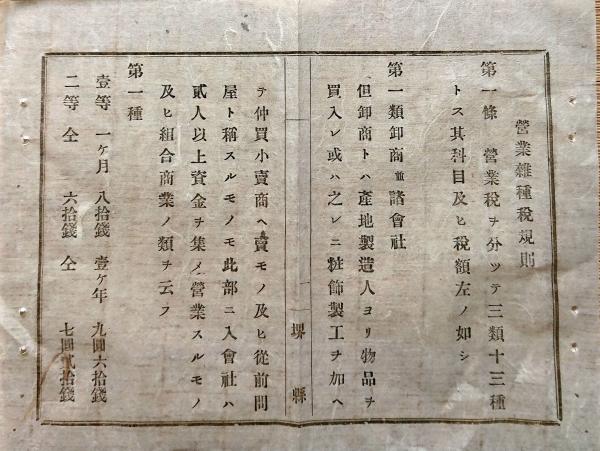 營業雜種稅規則
第一條　營業稅ヲ分ツテ三類十三種
トス其科目及ヒ稅額左ノ如シ
第一類卸商並諸會社
但卸商トハ產地製造人ヨリ物品ヲ
買入レ或ハ之レニ粧飾製工ヲ加ヘ
堺縣
テ仲買小賣商ヘ賣モノ及ヒ從前問
屋ト稱スルモノモ此部ニ入會社ハ
貳人以上資金ヲ集メ營業スルモノ
及ヒ組合商業ノ類ヲ云フ
第一種
壹等　一ケ月　八拾錢　壹ケ年　九圓六拾錢
二等　仝　六拾錢　仝　七圓貳拾錢